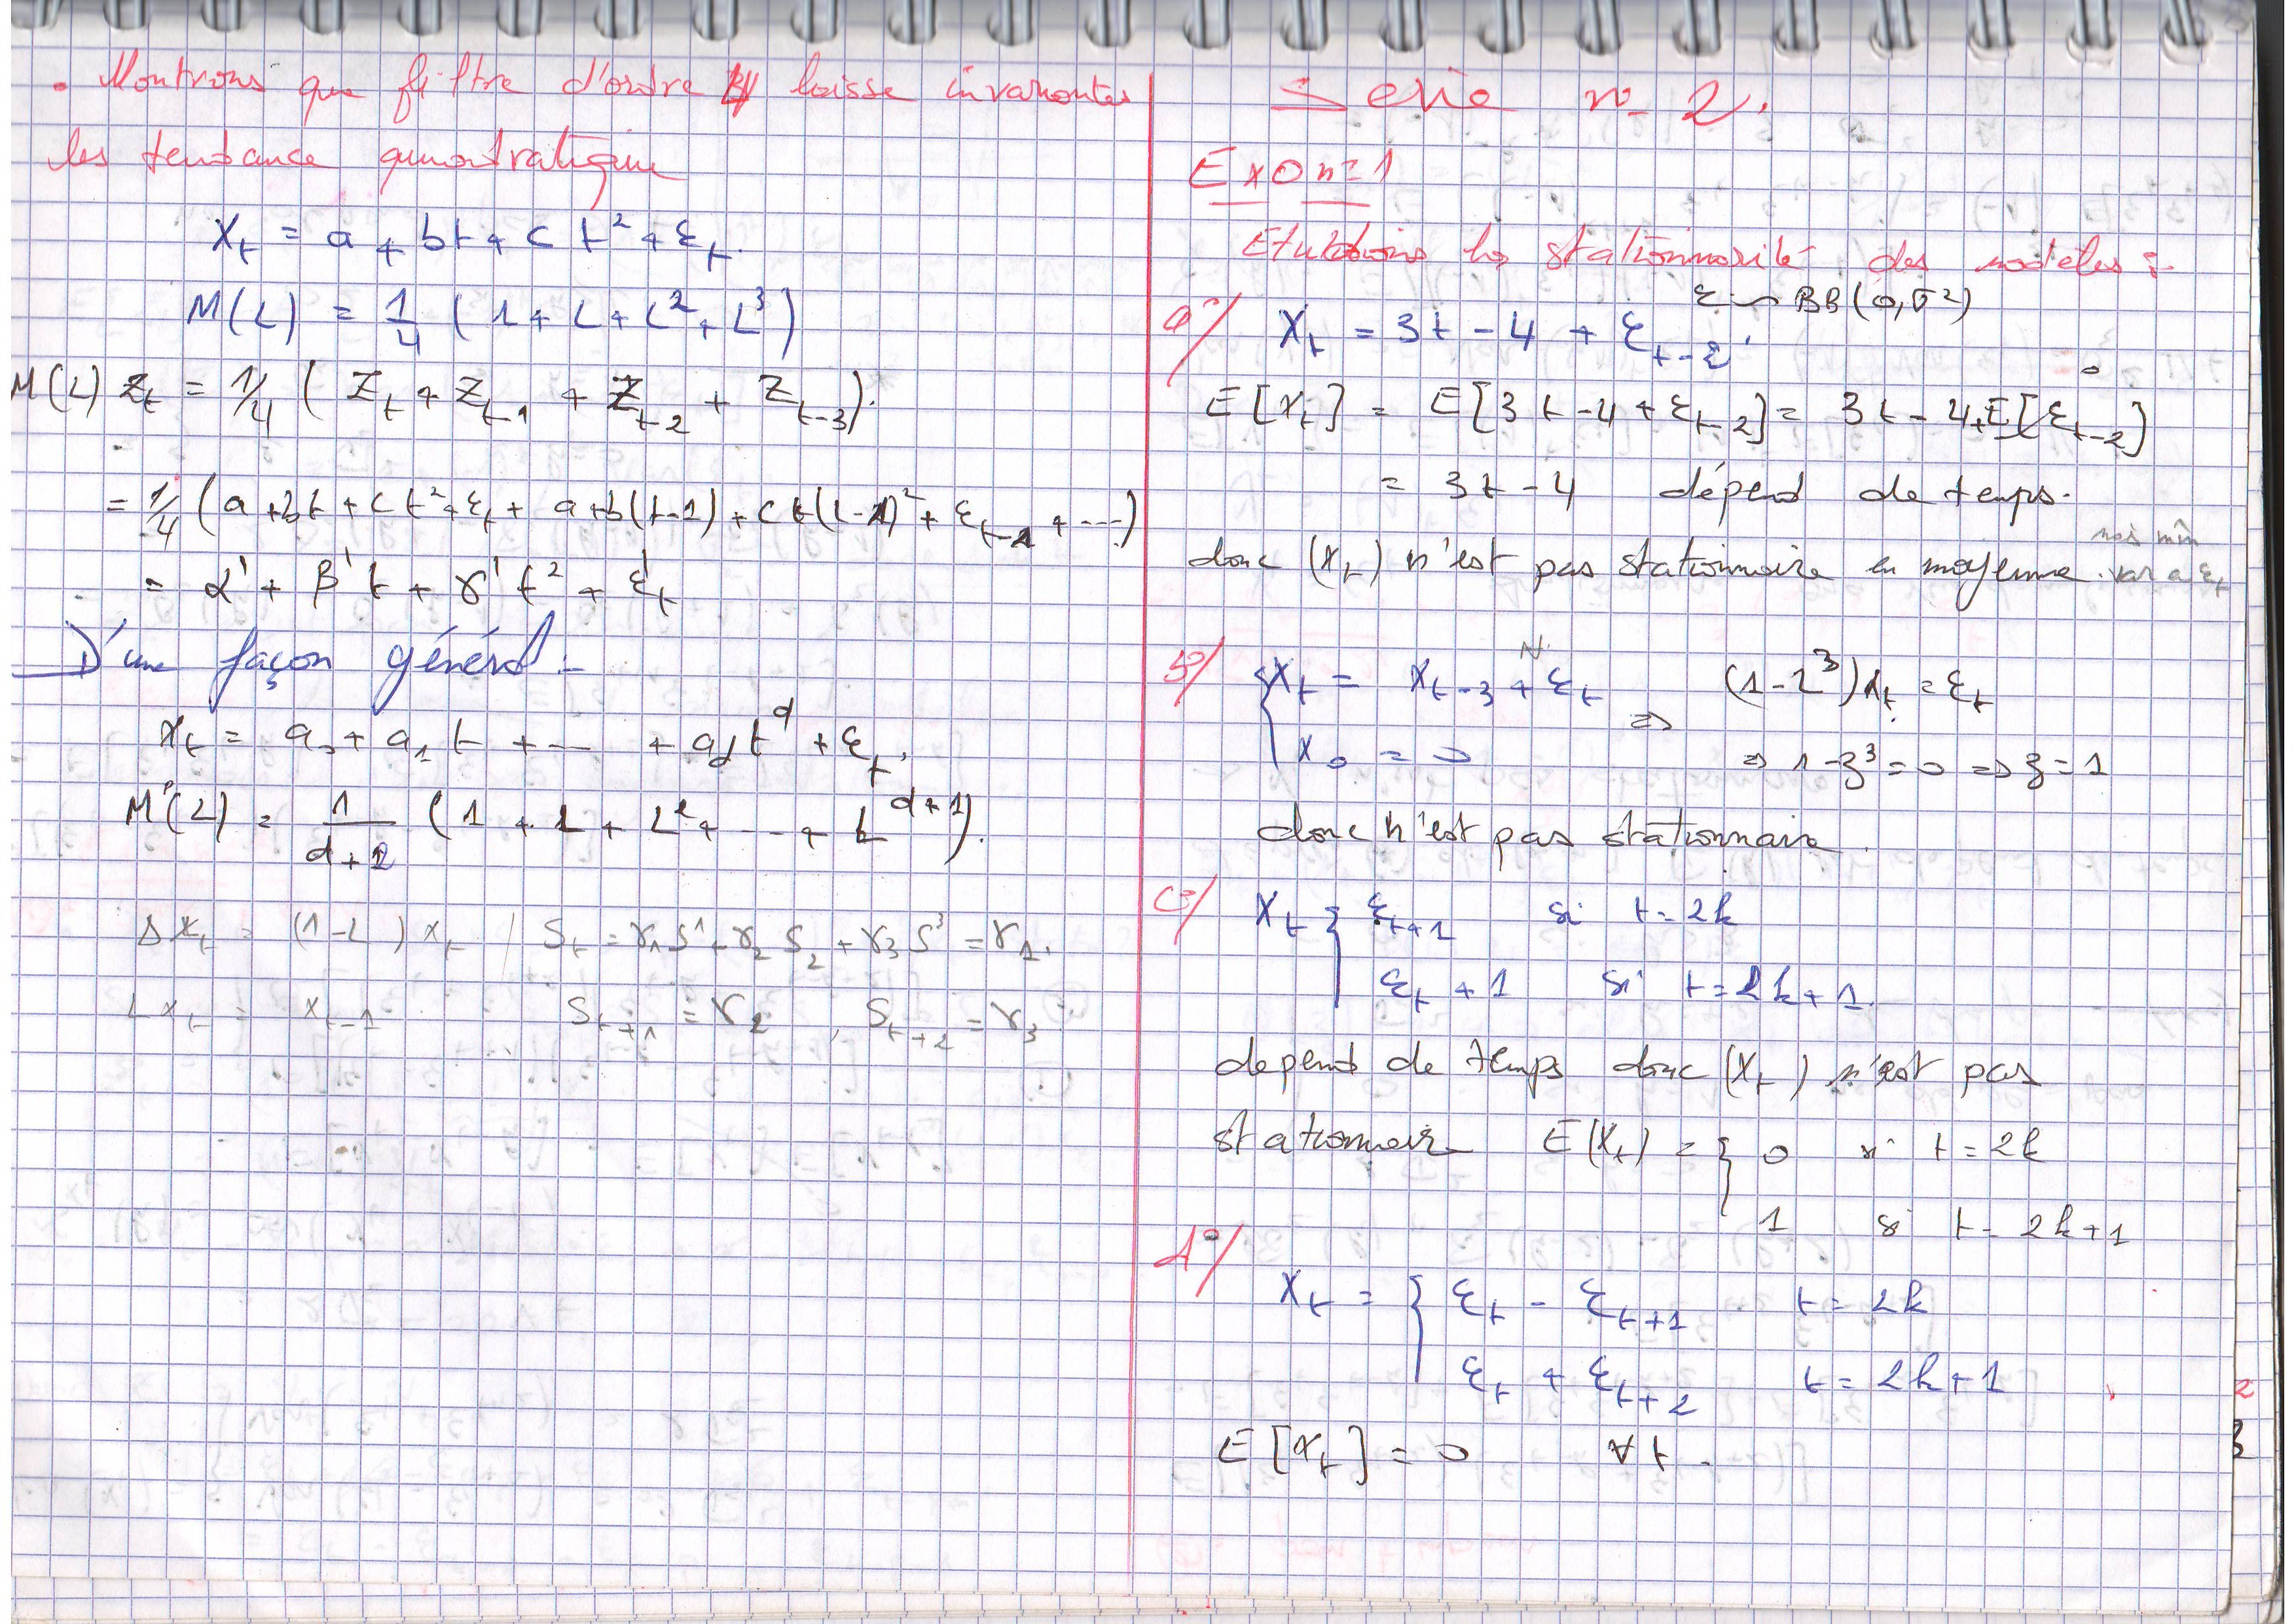 . Montrons que filtre d'ordre 4 laisse invariantes
les tendance
X_t = a + bt + c t² + ε_t.
M(L) = 1/4 (1 + L + L² + L³)
M(L) Z_t = 1/4 ( Z_t + Z_{t-1} + Z_{t-2} + Z_{t-3}).
= 1/4 (a + bt + c t² + ε_t + a + b(t-1) + c t(t-1)² + ε_{t-1} + ---)
= α' + β' t + γ' t² + ε'_t
D'une façon général :-
X_t = a_0 + a_1 t + --- + a_d t^d + ε_t.
M(L) = 1/(d+2) (1 + L + L² + --- + L^{d+1}).
Δ X_t = (1-L) X_t / S_t = γ_1 S^1 + γ_2 S_2 + γ_3 S^3 = γ_1.
L X_t = X_{t-1} S_{t+1} = γ_2 , S_{t+2} = γ_3
Serie n° 2.
Exo n=1
Etudions la stationnarité des modeles :-
ε ~ BB(0,σ²)
a°/ X_t = 3t - 4 + ε_{t-2}.
0
E[X_t] = E[3t - 4 + ε_{t-2}] = 3t - 4 + E[ε_{t-2}]
= 3t - 4 dépend de temps.
donc (X_t) n'est pas stationnaire en moyenne.
b°/ { X_t = X_{t-3} + ε_t ⇒ (1-L³) X_t = ε_t
X_0 = 0 ⇒ 1 - z³ = 0 ⇒ z = 1
donc n'est pas stationnaire.
c°/ X_t { ε_{t+1} si t = 2k
ε_t + 1 si t = 2k+1.
depend de temps donc (X_t) n'est pas
stationnair E(X_t) = { 0 si t = 2k
1 si t = 2k+1
d°/
X_t = { ε_t - ε_{t+1} t = 2k
ε_t + ε_{t+2} t = 2k+1
E[X_t] = 0 ∀t.
2
3